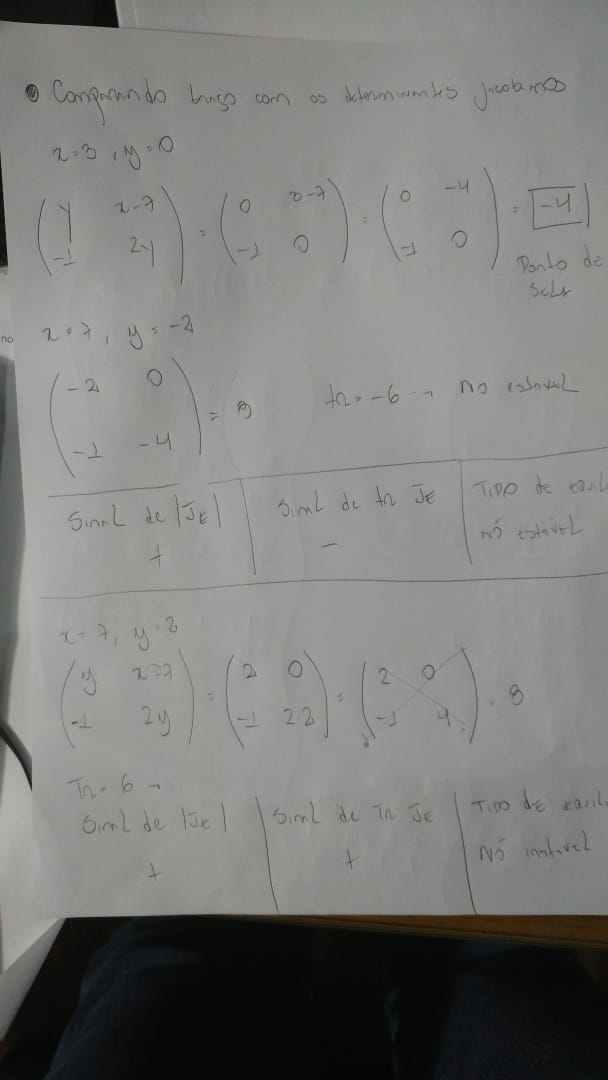 Comparando com os determinantes jacobianos
x=3, y=0
(y x-7; -1 2y) = (0 3-7; -1 0) = (0 -4; -1 0) = -4
Ponto de
Sela
no
x=7, y=-2
(-2 0; -1 -4) = 8 tr=-6 → no estavel
Sinal de |JE| Sinal de tr JE Tipo de equil
+ - nó estável
x=7, y=2
(y x-7; -1 2y) = (2 0; -1 2.2) = (2 0; -1 4) = 8
Tr=6 →
Sinal de |JE| Sinal de Tr JE Tipo de equil
+ + Nó instavel